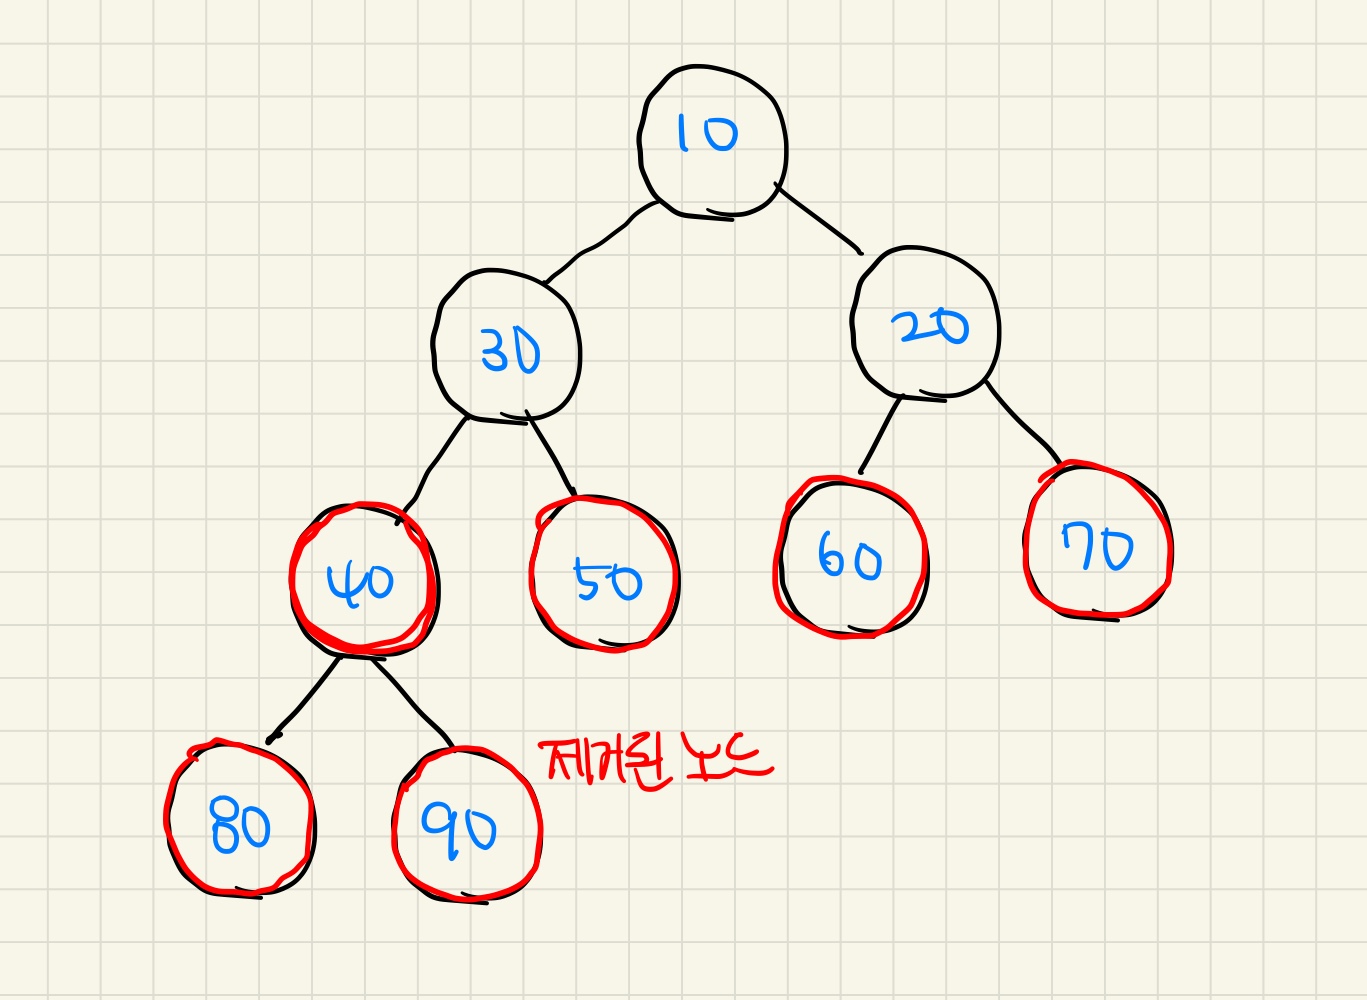 10
30
20
40
50
60
70
80
90
제거된 노드